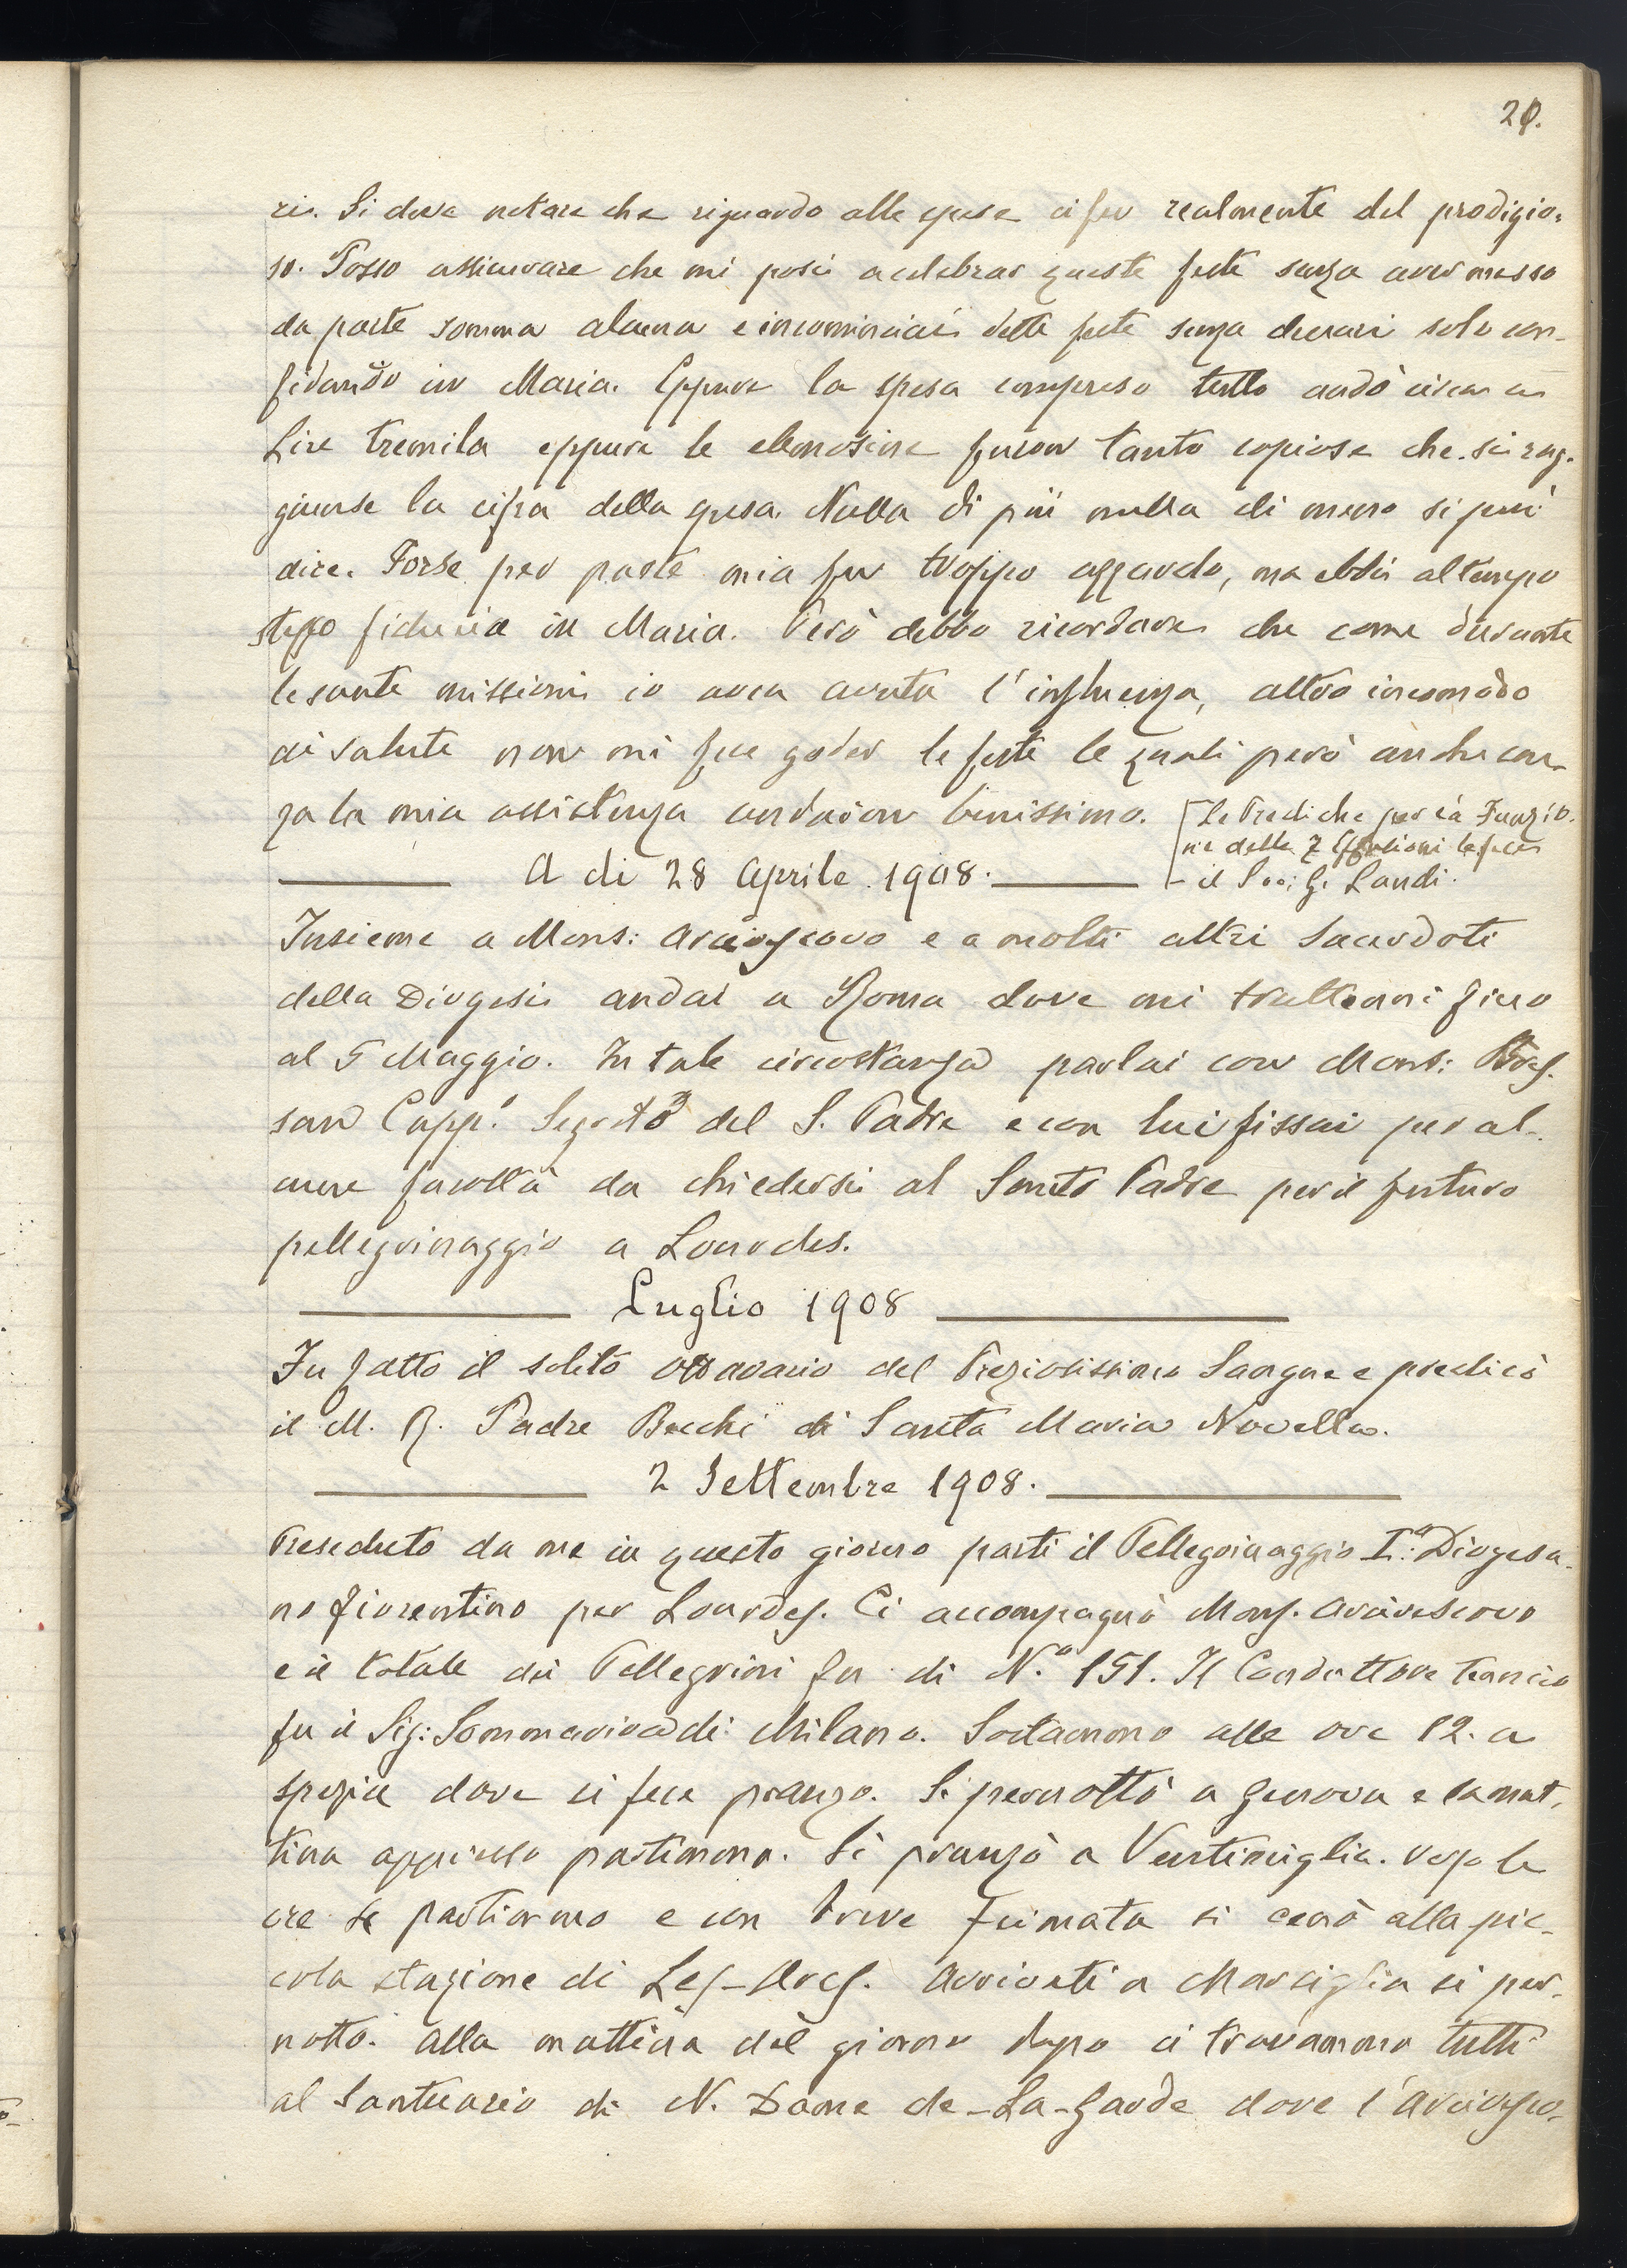 29.
rii. Si deve notare che riguardo alle spese ci fu realmente del prodigio-
so. Posso assicurare che mi posi a celebrar queste feste senza aver messo
da parte somma alcuna e incominciai dette feste senza denari solo con-
fidando in Maria. Eppure la spesa compreso tutto andò circa a
Lire tremila eppure le elemosine furon tanto copiose che si rag-
giunse la cifra della spesa. Nulla di più nulla di meno si può
dire. Forse per parte mia fu troppo azzardo, ma ebbi al tempo
stesso fiducia in Maria. Però debbo ricordare che come durante
le sante missioni io avea avuta l'influenza, altro incomodo
di salute non mi fece goder le feste le quali però anche sen-
za la mia assistenza andaron benissimo.
[Le Prediche per la Funzio-
ne delle 7 Effusioni le fece
il Prete G. Landi.
A di 28 Aprile 1908.
Insieme a Mons: Arcivescovo e a molti altri Sacerdoti
della Diogesi andai a Roma dove mi trattenni fino
al 5 Maggio. In tale circostanza parlai con Mons: Bres-
san Capp.o Segrető del S. Padre e con lui fissai per al-
cune facoltà da chiedersi al Santo Padre per il futuro
pellegrinaggio a Lourdes.
Luglio 1908
Fu fatto il solito ottavario del Preziosissimo Sangue e predicò
il M. R. Padre Bacchi di Santa Maria Novella.
2 Settembre 1908.
Preseduto da me in questo giorno partì il Pellegrinaggio I.o Diogesa-
no fiorentino per Lourdes. Ci accompagnò Mons. Arcivescovo
e il totale dei Pellegrini fu di N.o 151. Il Conduttore tecnico
fu il Sig: Sommariva di Milano. Sostammo alle ore 12. a
Spezia dove si fece pranzo. Si pernottò a Genova e la mat-
tina appresso partimmo. Si pranzò a Ventimiglia. Verso le
ore 6 partimmo e con breve fermata si cenò alla pic-
cola stazione di Les-Arcs. Arrivati a Marsiglia si per-
nottò. Alla mattina del giorno dopo ci trovammo tutti
al Santuario di N. Dame de-La-Garde dove l'Arcivesco-